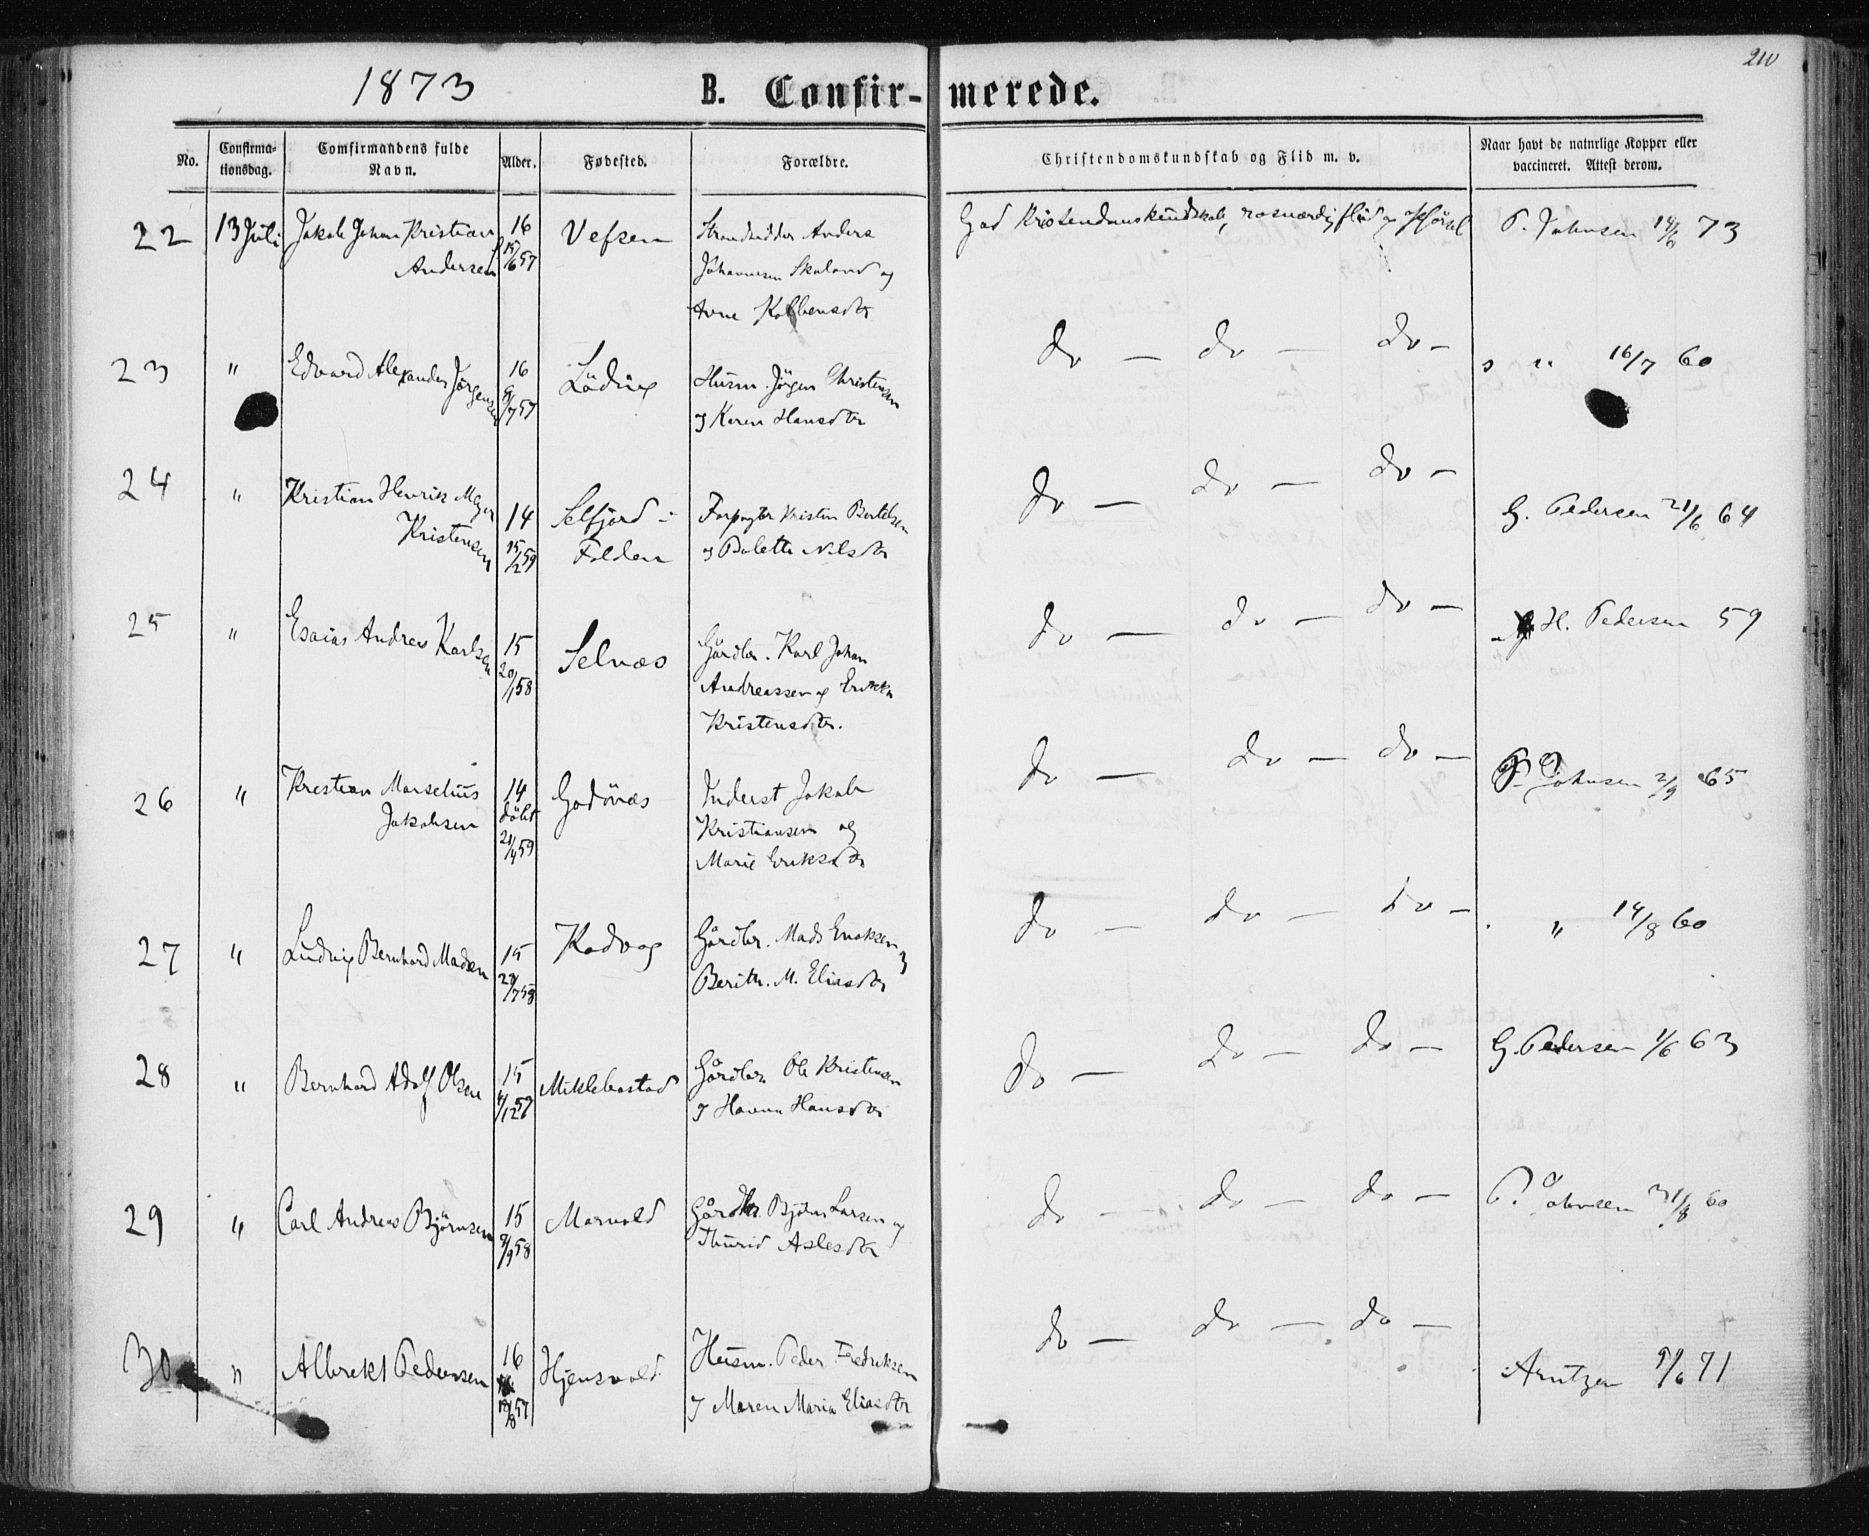 210
1873 B. Confir-merede.
No. Confirma-tionsdag. Comfirmandens fulde Navn. Alder. Fødested. Forældre. Christendomskundskab og Flid m. v. Naar havt de naturlige Kopper eller vaccineret. Attest derom.
22 13 Juli Jakob Johan Kristian 16 Vefsen Strandsidder Anders God Kristendomskundskab, rosværdig flid og P. Johnsen 14/6 73
Andersen 15/6 57 Johannesen Skaland og
Anne
23 " Edvard Alexander Jørgensen 16 Löding Husm. Jörgen Christensen do — do — do — " 16/7 60
9/7 57 og Karen Hansdtr
24 " Kristian Henrik Meyer 14 Selfjord i Forpagter Kristen Bertelsen do — do — do — G. Pedersen 21/6 64
Kristensen 15/2 59 Folden og Bolette Nilsdtr
25 " Esaias Andreas Karlsen 15 Selnæs Gårdbr. Karl Johan do — do — do — H. Pedersen 59
20/1 58 Andreassen og Erikka
Kristensdtr.
26 " Kristian Marselius 14 Godönæs Inderst Jakob do — do — do — P. Johnsen 2/9 65
Jakobsen döbt Kristiansen og
21/4 59 Marie Eriksdtr
27 " Ludvig Bernhard Madsen 15 Kodvag Gårdbr. Mads Enoksen og do — do — do — " 14/8 60
58 Berith. M. Eliasdtr
28 " Bernhard Adolf Olsen 15 Mikklebostad Gårdbr. Ole Kristensen do — do — do — G. Pedersen 1/6 63
4/12 57 og Hanna Hansdtr
29 " Carl Andreas Björnsen 15 Marvold Gårdbr. Björn Larsen og do — do — do — P. Johnsen 31/8 60
9/9 58 Thurid Aslesdtr
30 " Albrekt Pedersen 16 Hjemvold Husm. Peder Fredriksen do — do — do — Arntzen 9/6 71
18/8 57 og Maren Maria Eliasdtr